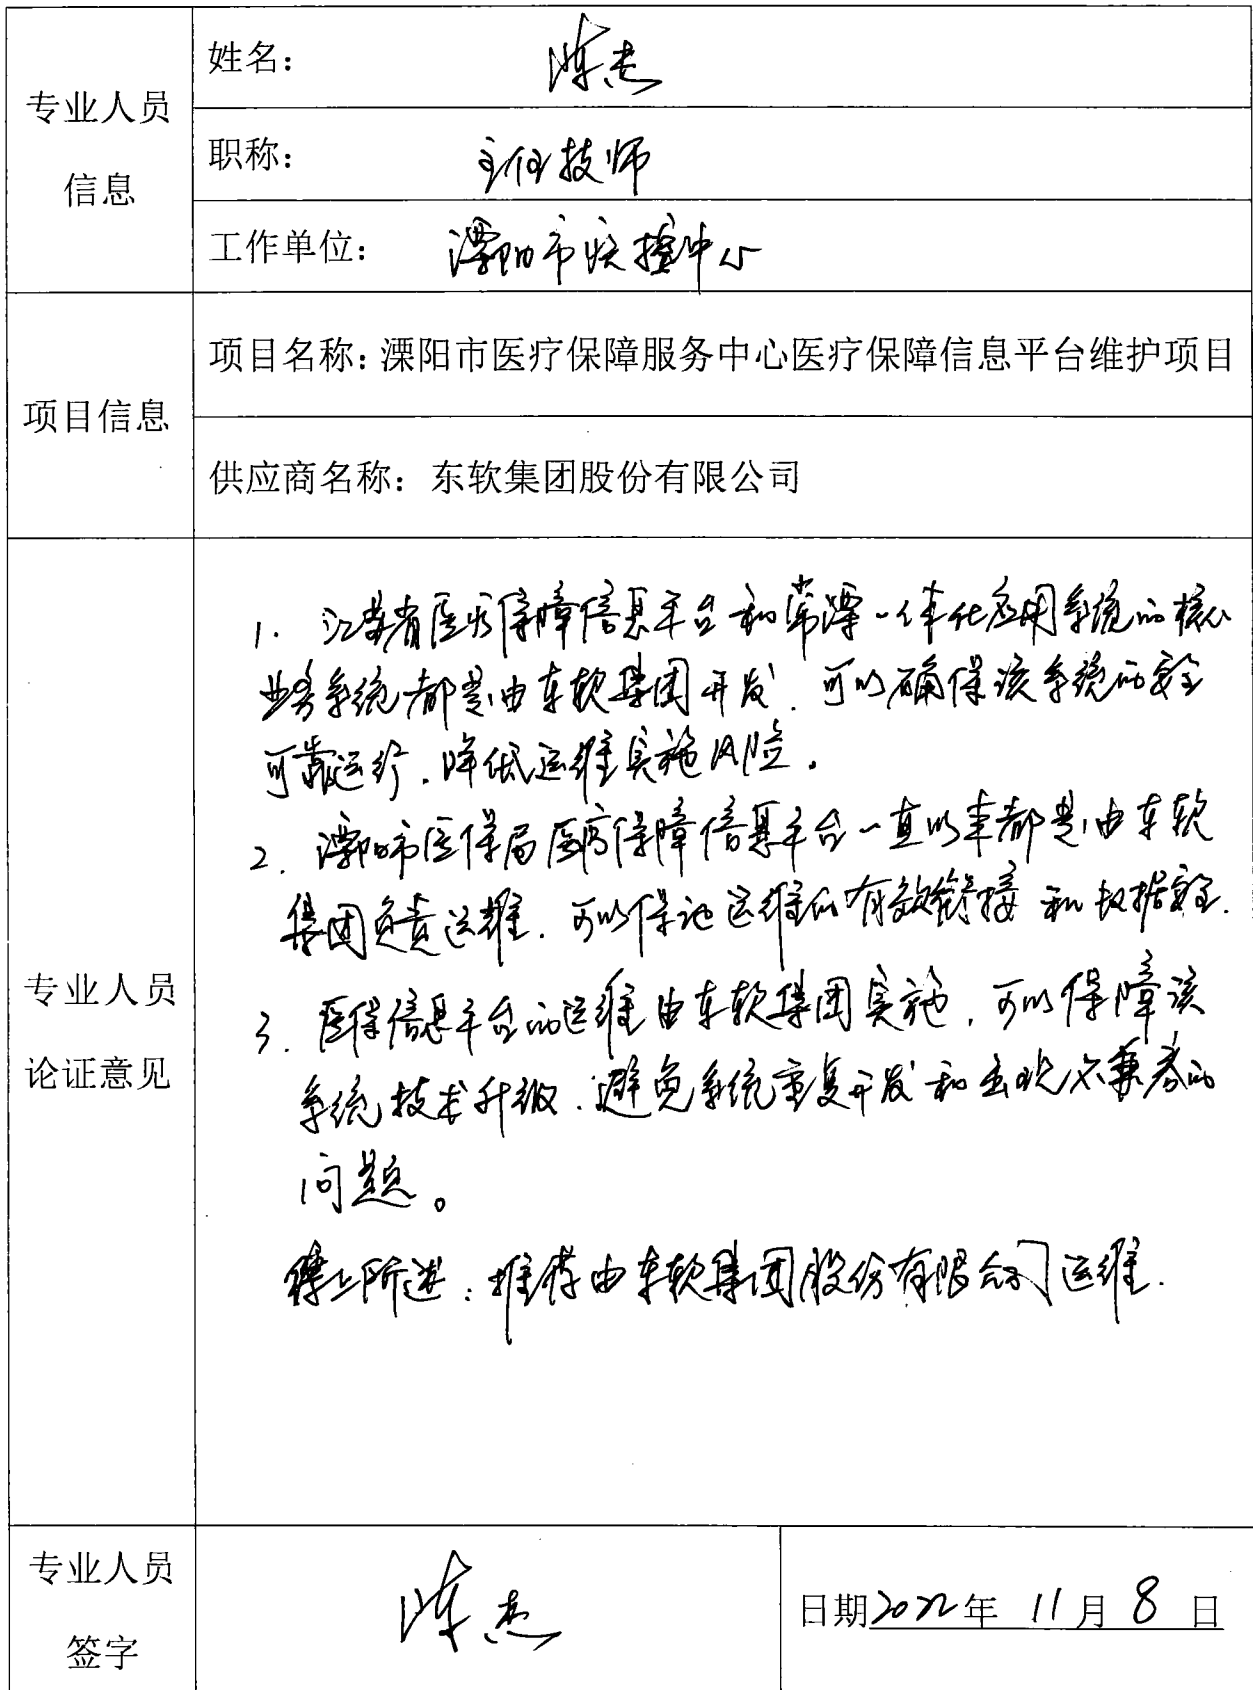 专业人员
信息
姓名： 陈杰
职称： 主任技师
工作单位： 溧阳市疾控中心
项目信息
项目名称：溧阳市医疗保障服务中心医疗保障信息平台维护项目
供应商名称：东软集团股份有限公司
专业人员
论证意见
1. 江苏省医疗保障信息平台和常溧一体化应用系统的核心
业务系统都是由东软集团开发，可以确保该系统的安全
可靠运行，降低运维实施风险。
2. 溧阳市医保局医疗保障信息平台一直以来都是由东软
集团负责运维，可以保证运维的有效衔接和数据安全。
3. 医保信息平台的运维由东软集团实施，可以保障该
系统技术升级，避免系统重复开发和出现不兼容的
问题。
综上所述：推荐由东软集团股份有限公司运维.
专业人员
签字
陈杰
日期2022年 11月 8 日